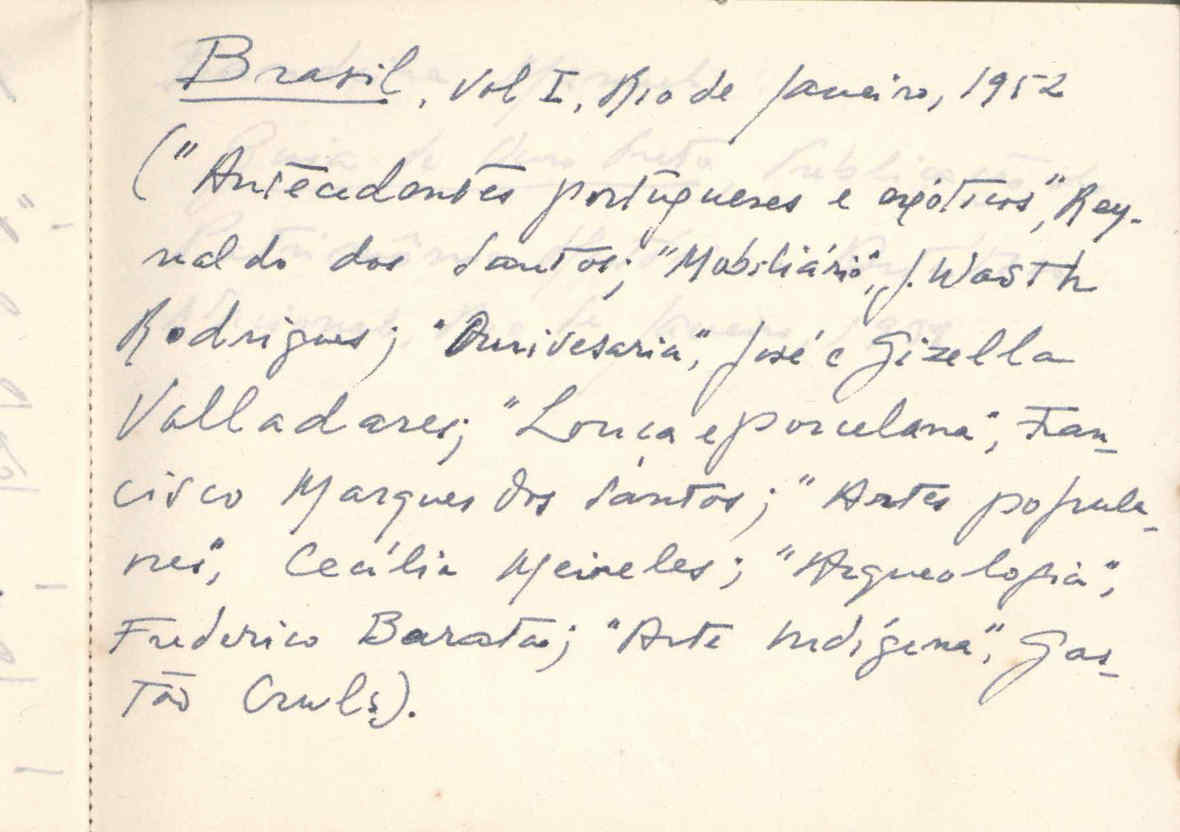 Brasil, Vol I, Rio de Janeiro, 1952
("Antecedentes portugueses e exóticos", Rey-
naldo dos Santos; "Mobiliário", J. Wasth
Rodrigues; "Ourivesaria", José e Gizella
Valladares; "Louça e porcelana", Fran-
cisco Marques dos Santos; "Artes popula-
res", Cecília Meireles; "Arqueologia",
Frederico Barata; "Arte indígena", Gas-
tão Cruls).